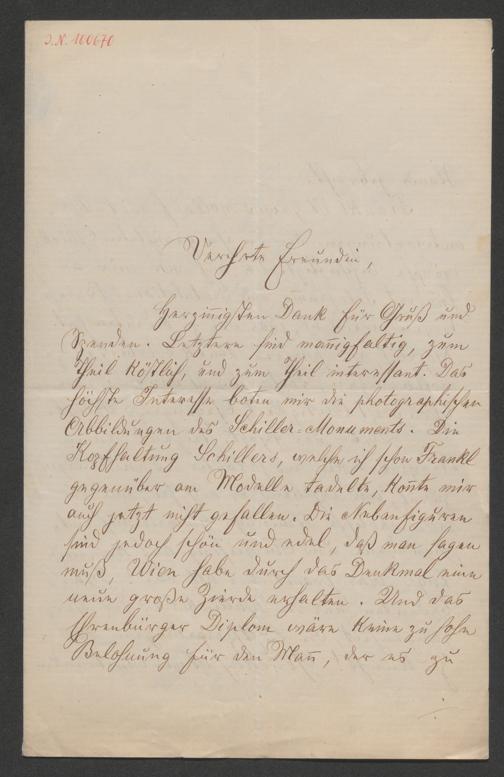 J.N. 100670
Verehrte Freundin,
Herzinnigsten Dank für Gruß und
Spenden. Letztere sind mannigfaltig, zum
Theil köstlich, und zum Theil interessant. Das
höchste Interesse boten mir die photographischen
Abbildungen des Schiller-Monuments. Die
Kopfhaltung Schillers, welche ich schon Frankl
gegenüber am Modelle tadelte, konnte mir
auch jetzt nicht gefallen. Die Nebenfiguren
sind jedoch schön und edel, daß man sagen
muß, Wien habe durch das Denkmal eine
neue große Zierde erhalten. Und das
Ehrenbürger Diplom wäre keine zu hohe
Belohnung für den Mann, der es zu